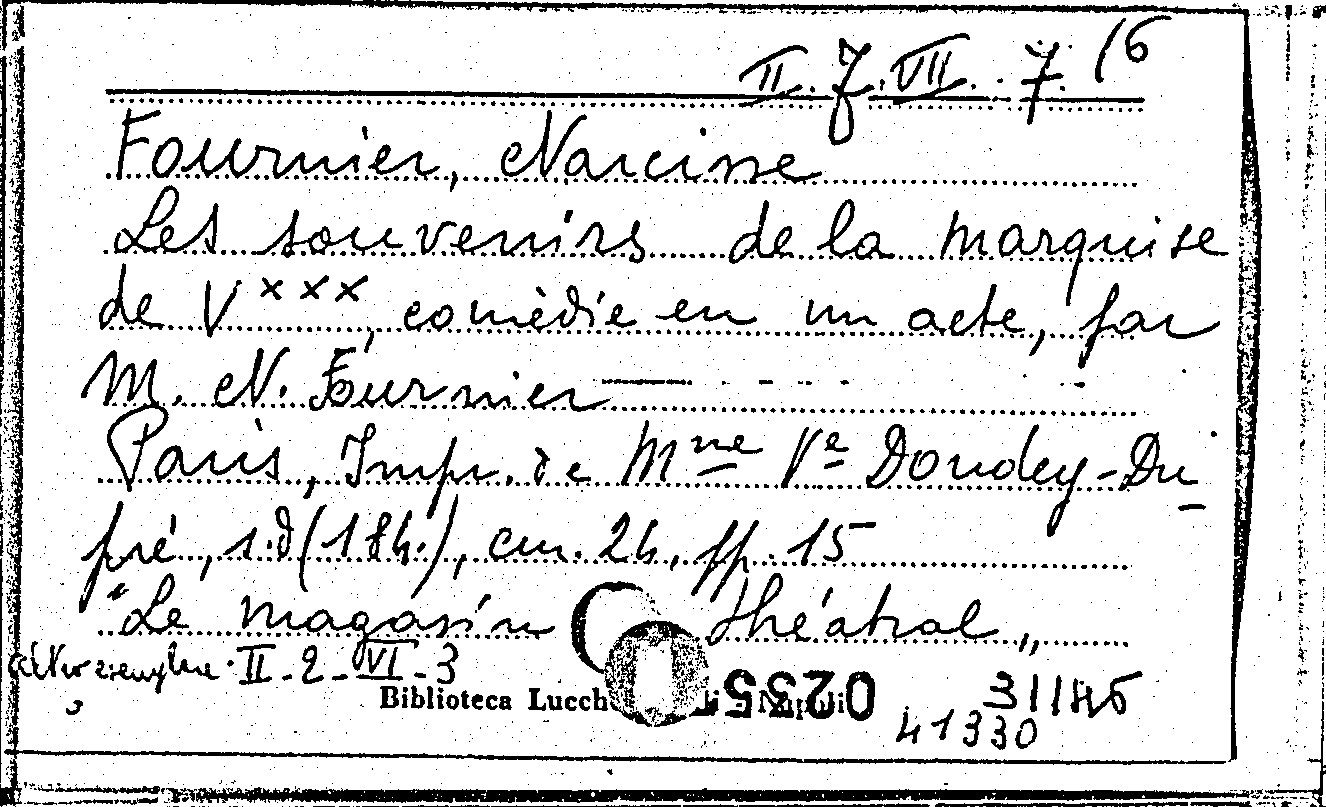 II. 7. VII. 7. (6
Fournier, Narcisse
Les souvenirs de la marquise
de V xxx, comèdie en un acte, par
M. N. Fournier
Paris, Impr. de Mme Ve Dondey-Du
pré, s.d (184.), cm. 24, pp. 15
"Le magasin théatral„
altro esemplare. II-2-VI-3
Biblioteca Lucch
0235
31145
41330